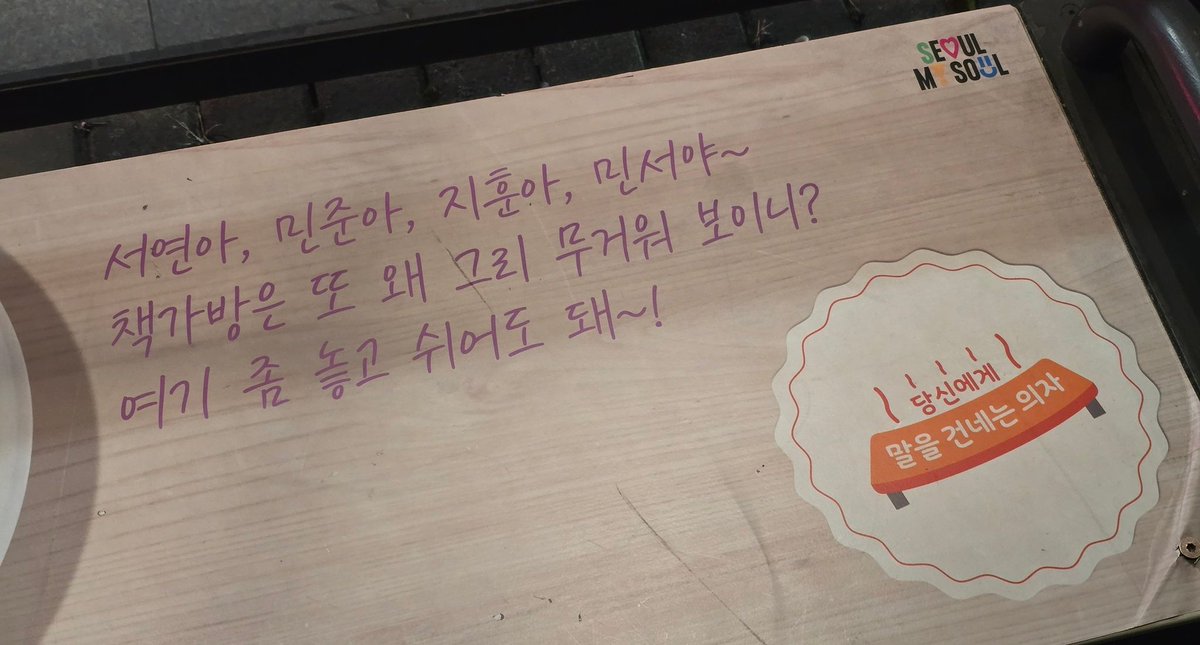 SEOUL
MY SOUL
서연아, 민준아, 지훈아, 민서야~
책가방은 또 왜 그리 무거워 보이니?
여기 좀 놓고 쉬어도 돼~!
당신에게
말을 건네는 의자